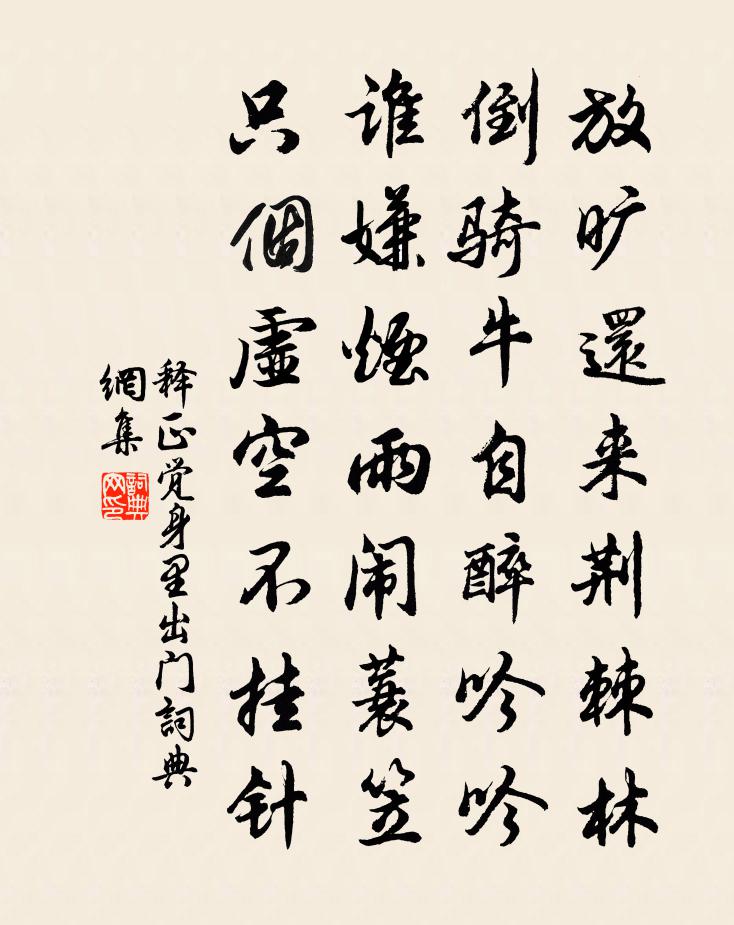 放旷還来荆棘林
倒骑牛自醉吟吟
谁嫌煙雨闹蓑笠
只個虚空不挂针
释正觉身里出门詞典
網集
詞典
网印